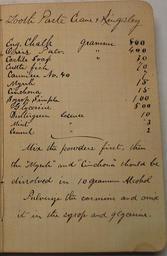 Tooth Paste Crane & Kingsley
Eng. Chalk Grammes 800
Powd. " 500
Castile Soap " 20
Cuttle fish 20
Carmine No. 40 7
Myrrh 15
Cinchona 15
Syrup Simple 100
Glycerine 500
Wintergreen 10
Mint " 3
" 2
Mix the powders first, then
the "Myrrh" and "Cinchona" should be
dissolved in 10 gramm Alcohol
Pulverize the carmine and
it in the syrup and glycerine.